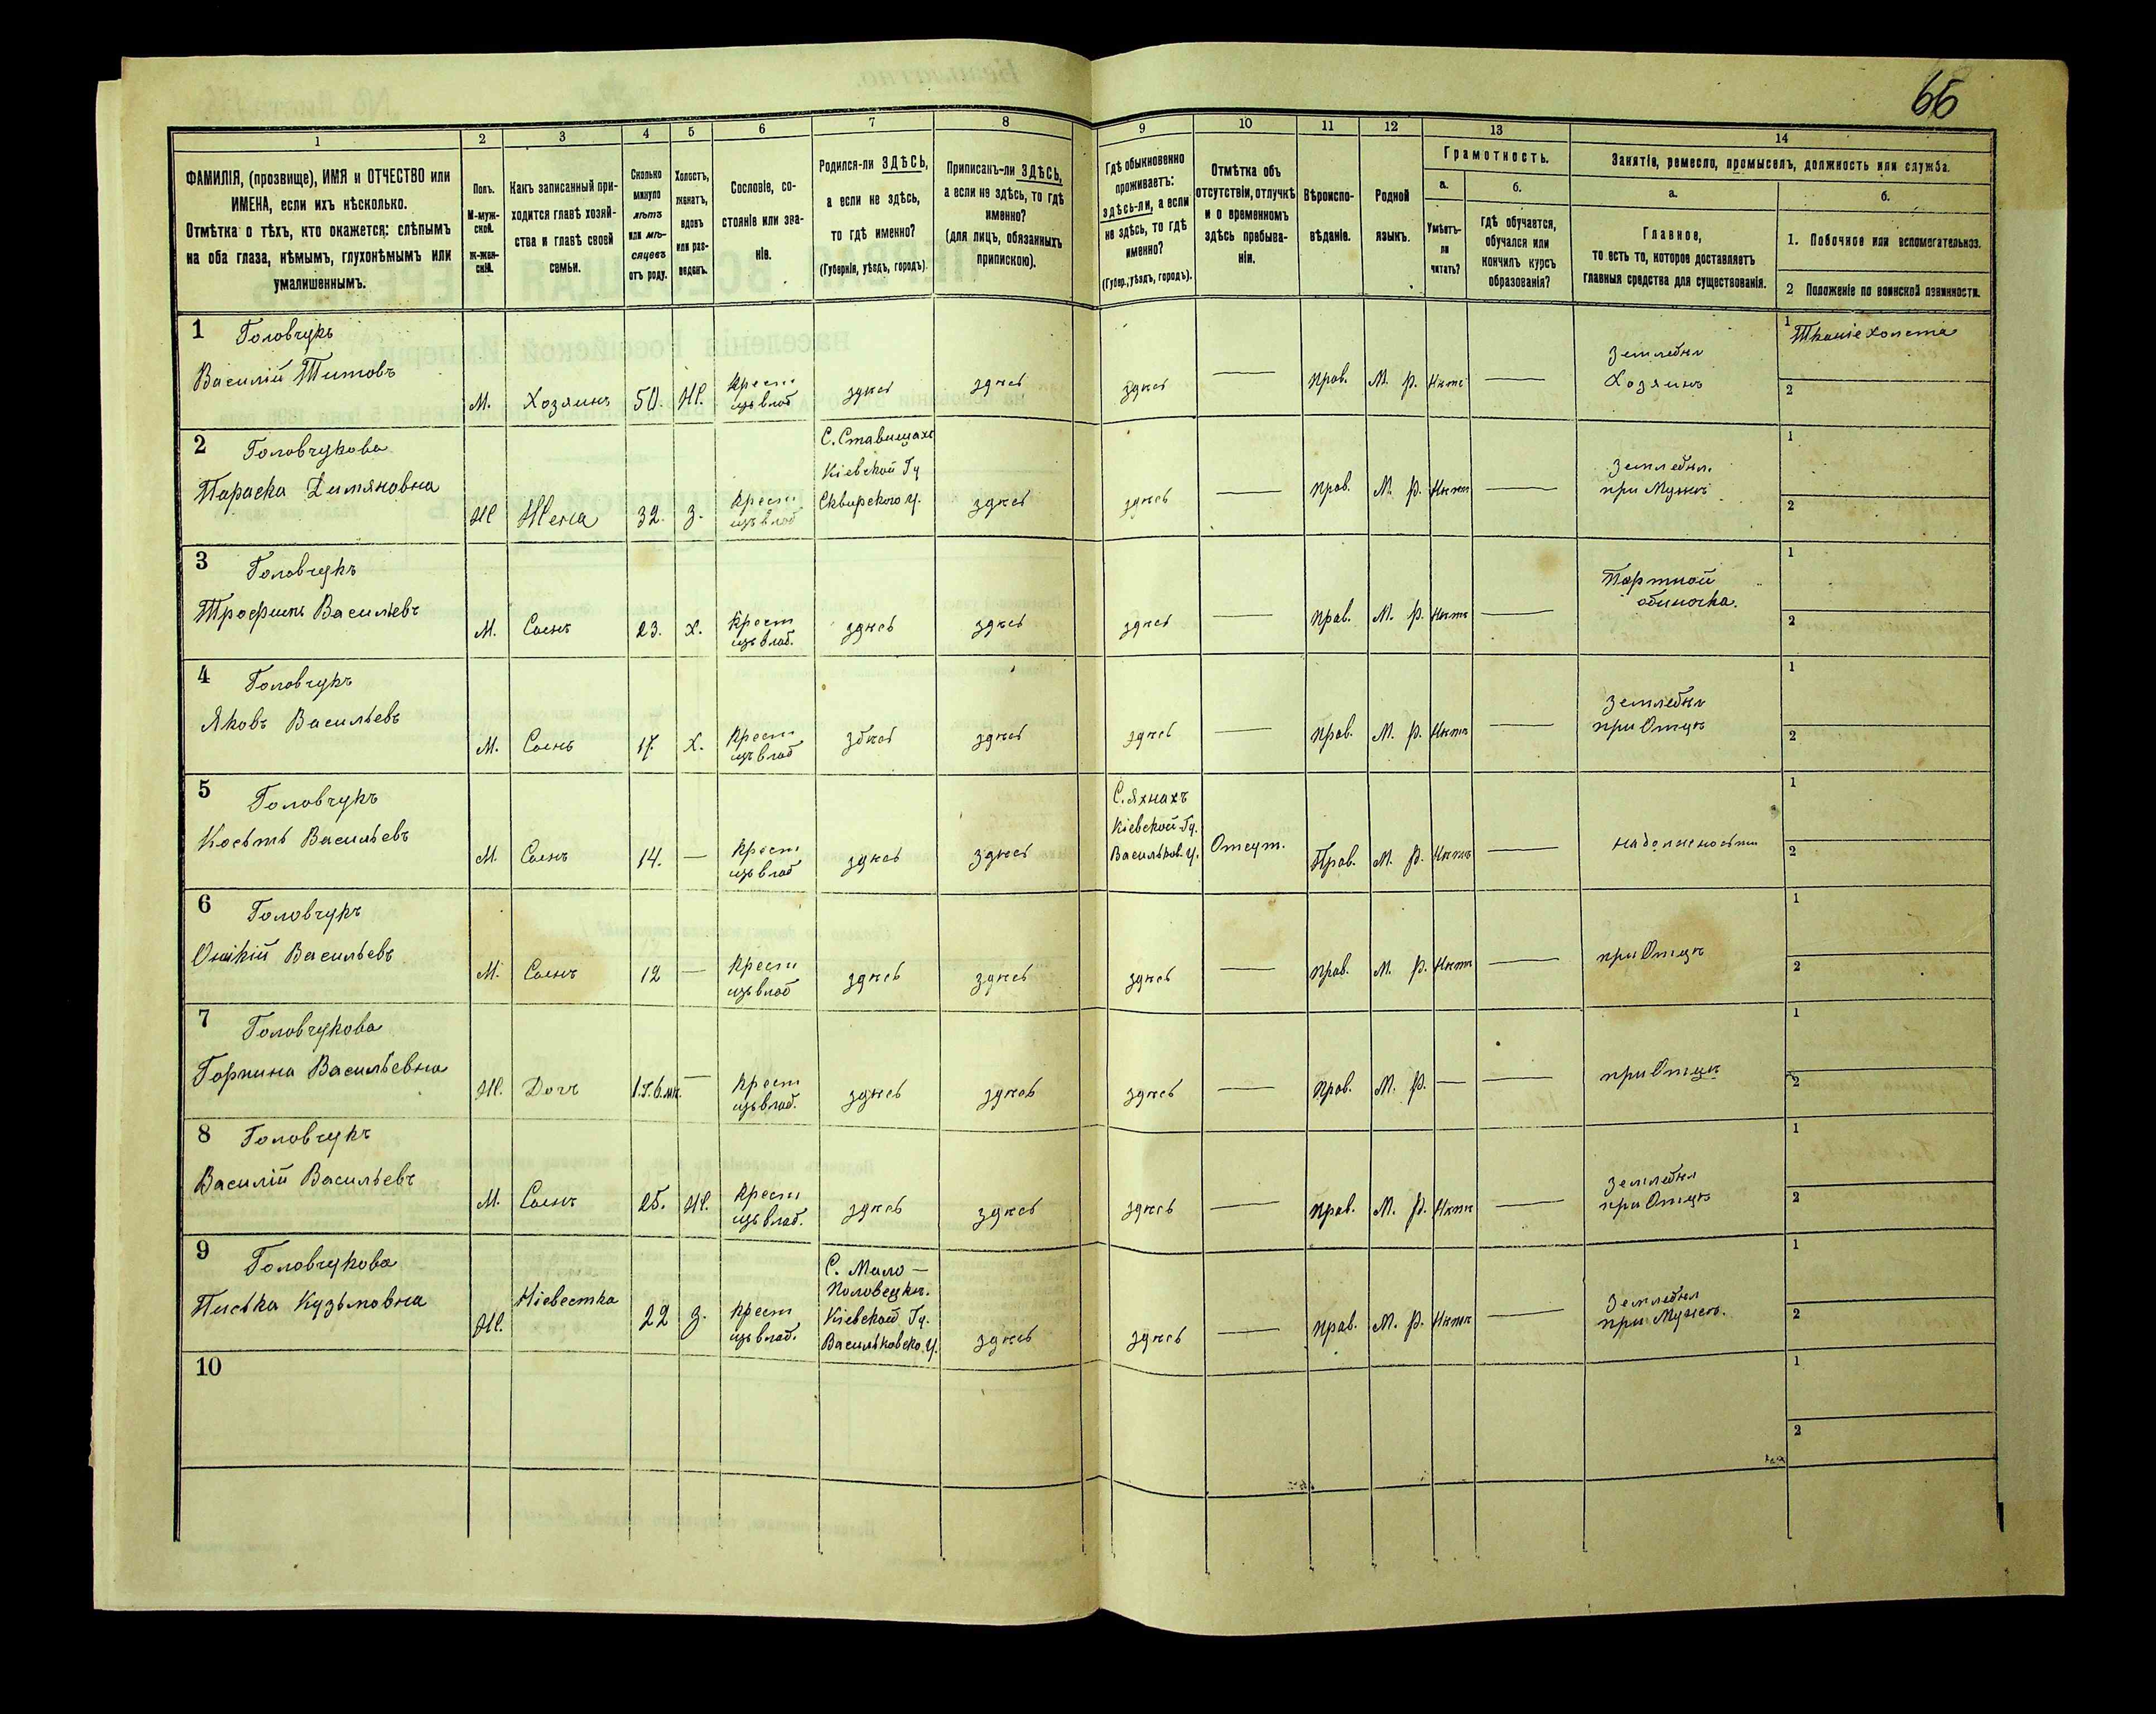 66
1
2
3
4
5
6
7
8
9
10
11
12
13
14
ФАМИЛІЯ, (прозвище), ИМЯ и ОТЧЕСТВО или
ИМЕНА, если ихъ нѣсколько.
Отмѣтка о тѣхъ, кто окажется: слѣпымъ
на оба глаза, нѣмымъ, глухонѣмымъ или
умалишеннымъ.
Полъ.
М-муж-
ской.
ж-жен-
скій.
Какъ записанный при-
ходится главѣ хозяй-
ства и главѣ своей
семьи.
Сколько
минуло
лѣтъ
или мѣ-
сяцевъ
отъ роду.
Холостъ,
женатъ,
вдовъ
или раз-
веденъ.
Сословіе, со-
стояніе или зва-
ніе.
Родился-ли ЗДѢСЬ,
а если не здѣсь,
то гдѣ именно?
(Губернія, уѣздъ, городъ).
Приписанъ-ли ЗДѢСЬ,
а если не здѣсь, то гдѣ
именно?
(для лицъ, обязанныхъ
припискою).
Гдѣ обыкновенно
проживаетъ:
здѣсь-ли, а если
не здѣсь, то гдѣ
именно?
(Губер., уѣздъ, городъ).
Отмѣтка объ
отсутствіи, отлучкѣ
и о временномъ
здѣсь пребыва-
ніи.
Вѣроиспо-
вѣданіе.
Родной
языкъ.
Грамотность.
а.
б.
Умѣетъ-
ли
читать?
Гдѣ обучается,
обучался или
кончилъ курсъ
образованія?
Занятіе, ремесло, промыселъ, должность или служба.
а.
б.
Главное,
то есть то, которое доставляетъ
главныя средства для существованія.
1. Побочное или вспомогательное.
2 Положеніе по воинской повинности.
1 Головчукъ
Василій Титовъ
М.
Хозяинъ
50.
Ж.
Крест
изъ влад
здѣсь
здѣсь
здѣсь
—
прав.
М. р.
Нѣтъ
—
Земледѣл
Хозяинъ
1 Тканіе холста
2
2 Головчукова
Параска Димяновна
Ж
Жена
32.
З.
Крест
изъ влад
С. Ставищахъ
Кіевской Гу
Сквирского У.
здѣсь
здѣсь
—
прав.
М. р.
Нѣтъ
—
Земледѣл.
при Мужѣ
1
2
3 Головчукъ
Трофимъ Васильевъ
М.
Сынъ
23.
Х.
Крест
изъ влад.
здѣсь
здѣсь
здѣсь
—
прав.
М. р.
Нѣтъ
—
Портной
одиночка.
1
2
4 Головчукъ
Яковъ Васильевъ
М.
Сынъ
17.
Х.
Крест
изъ влад
здѣсь
здѣсь
здѣсь
—
прав.
М. р.
Нѣтъ
—
Земледѣл
при Отцѣ
1
2
5 Головчукъ
Косьть Васильевъ
М.
Сынъ
14.
—
Крест
изъ влад
здѣсь
здѣсь
С. Яхнахъ
Кіевской Гу.
Васильков. У.
Отсут.
Прав.
М. р.
Нѣтъ
—
на должности
1
2
6 Головчукъ
Васильевъ
М.
Сынъ
12
—
Крест
изъ влад
здѣсь
здѣсь
здѣсь
—
прав.
М. р.
Нѣтъ
—
при Отцѣ
1
2
7 Головчукова
Горпина Васильевна
Ж.
Дочъ
1.г.6.мѣ.
—
Крест
изъ влад.
здѣсь
здѣсь
здѣсь
—
прав.
М. р.
—
—
при Отцѣ
1
2
8 Головчукъ
Василій Васильевъ
М.
Сынъ
25.
Ж.
Крест
изъ влад.
здѣсь
здѣсь
здѣсь
—
прав.
М. р.
Нѣтъ
—
Земледѣл
при Отцѣ
1
2
9 Головчукова
Кузьмовна
Ж.
Нiевестка
22
З.
Крест
изъ влад.
С. Мало—
Половецкѣ.
Кіевской Гу.
Васильковско. У.
здѣсь
здѣсь
—
прав.
М. р.
Нѣтъ
—
Земледѣл
при Мужѣ.
1
2
10
1
2